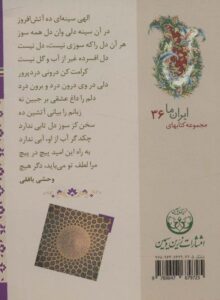 الهی سینه‌ای ده آتش‌افروز
در آن سینه دلی وان دل همه سوز
هر آن دل را که سوزی نیست، دل نیست
دل افسرده غیر از آب و گل نیست
کرامت کن درونی درد پرور
دلی در وی درون درد و برون درد
دلم را داغ عشقی بر جبین نه
زبانم را بیانی آتشین ده
سخن کز سوز دل تابی ندارد
چکد گر آب از او، آبی ندارد
به راه این امید پیچ در پیچ
مرا لطف تو می‌باید، دگر هیچ
وحشی بافقی
ایران ما
مجموعه کتابهای
۳۶
انتشارات زرین و سیمین